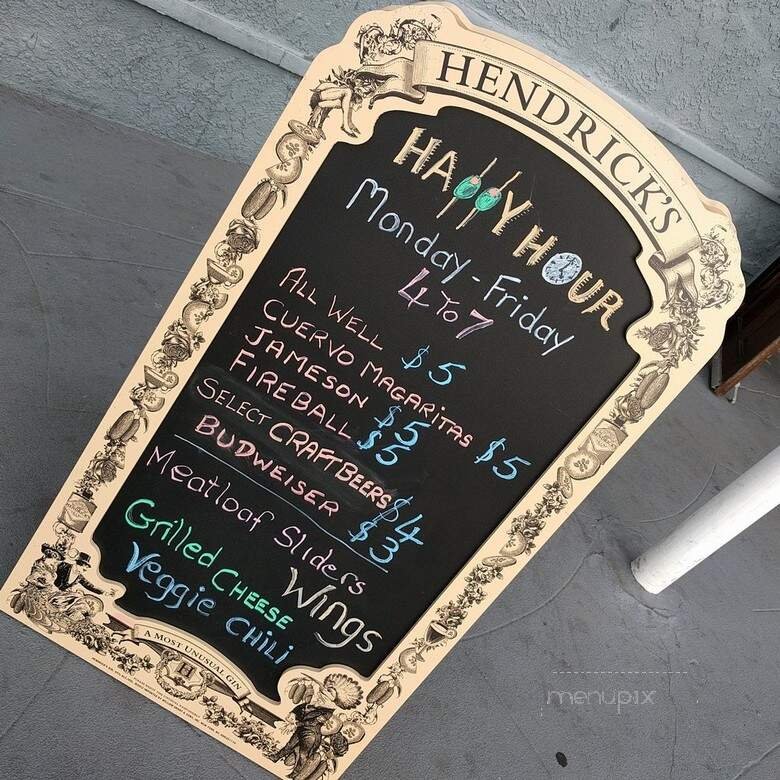 HENDRICK'S
HAPPY HOUR
Monday - Friday
4 To 7
ALL WELL $5
CUERVO MAGARITAS $5
JAMESON $5
FIREBALL $5
SELECT CRAFT BEERS $4
BUDWEISER $3
Meatloaf Sliders
Grilled CHEESE Wings
Veggie CHILI
A MOST UNUSUAL GIN
H
menupix